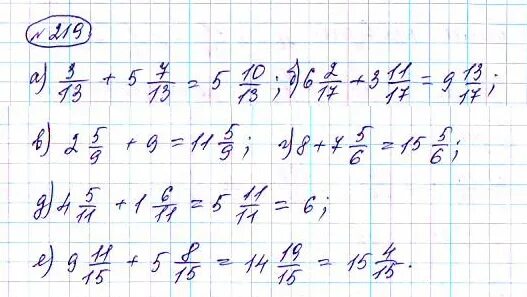 № 219
а) 3/13 + 5 7/13 = 5 10/13; б) 6 2/17 + 3 11/17 = 9 13/17;
в) 2 5/9 + 9 = 11 5/9; г) 8 + 7 5/6 = 15 5/6;
д) 4 5/11 + 1 6/11 = 5 11/11 = 6;
е) 9 11/15 + 5 8/15 = 14 19/15 = 15 4/15.